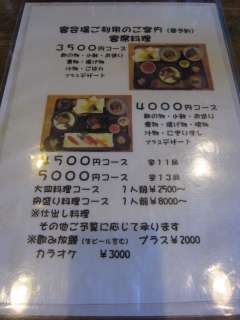 宴会場ご利用のご案内 (要予約)
宴席料理
3500円コース
飯の物・小鉢・お造り
煮物・揚げ物
汁物・ごはん
プラスデザート
4000円コース
飯の物・小鉢・お造り
煮物・揚げ物・焼物
汁物・にぎりすし
プラスデザート
4500円コース 全11品
5000円コース 全13品
大皿料理コース 1人前¥2500〜
舟盛り料理コース 1人前¥8000〜
※仕出し料理
その他ご予算に応じて承ります
※飲み放題(生ビール含む) プラス¥2000
カラオケ ¥3000